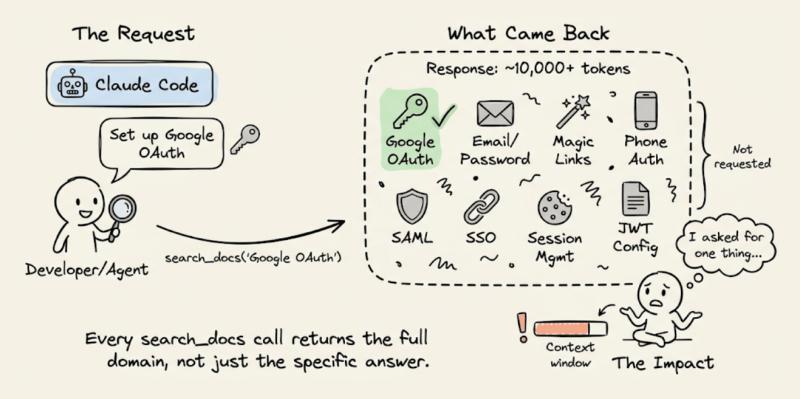 The Request
Claude Code
Set up Google
OAuth
Developer/Agent
search_docs('Google OAuth')
What Came Back
Response: ~10,000+ tokens
Google
OAuth
Email/
Password
Magic
Links
Phone
Auth
SAML
SSO
Session
Mgmt
JWT
Config
Not
requested
I asked for
one thing...
Every search_docs call returns the full
domain, not just the specific answer.
!
Context
window
The Impact